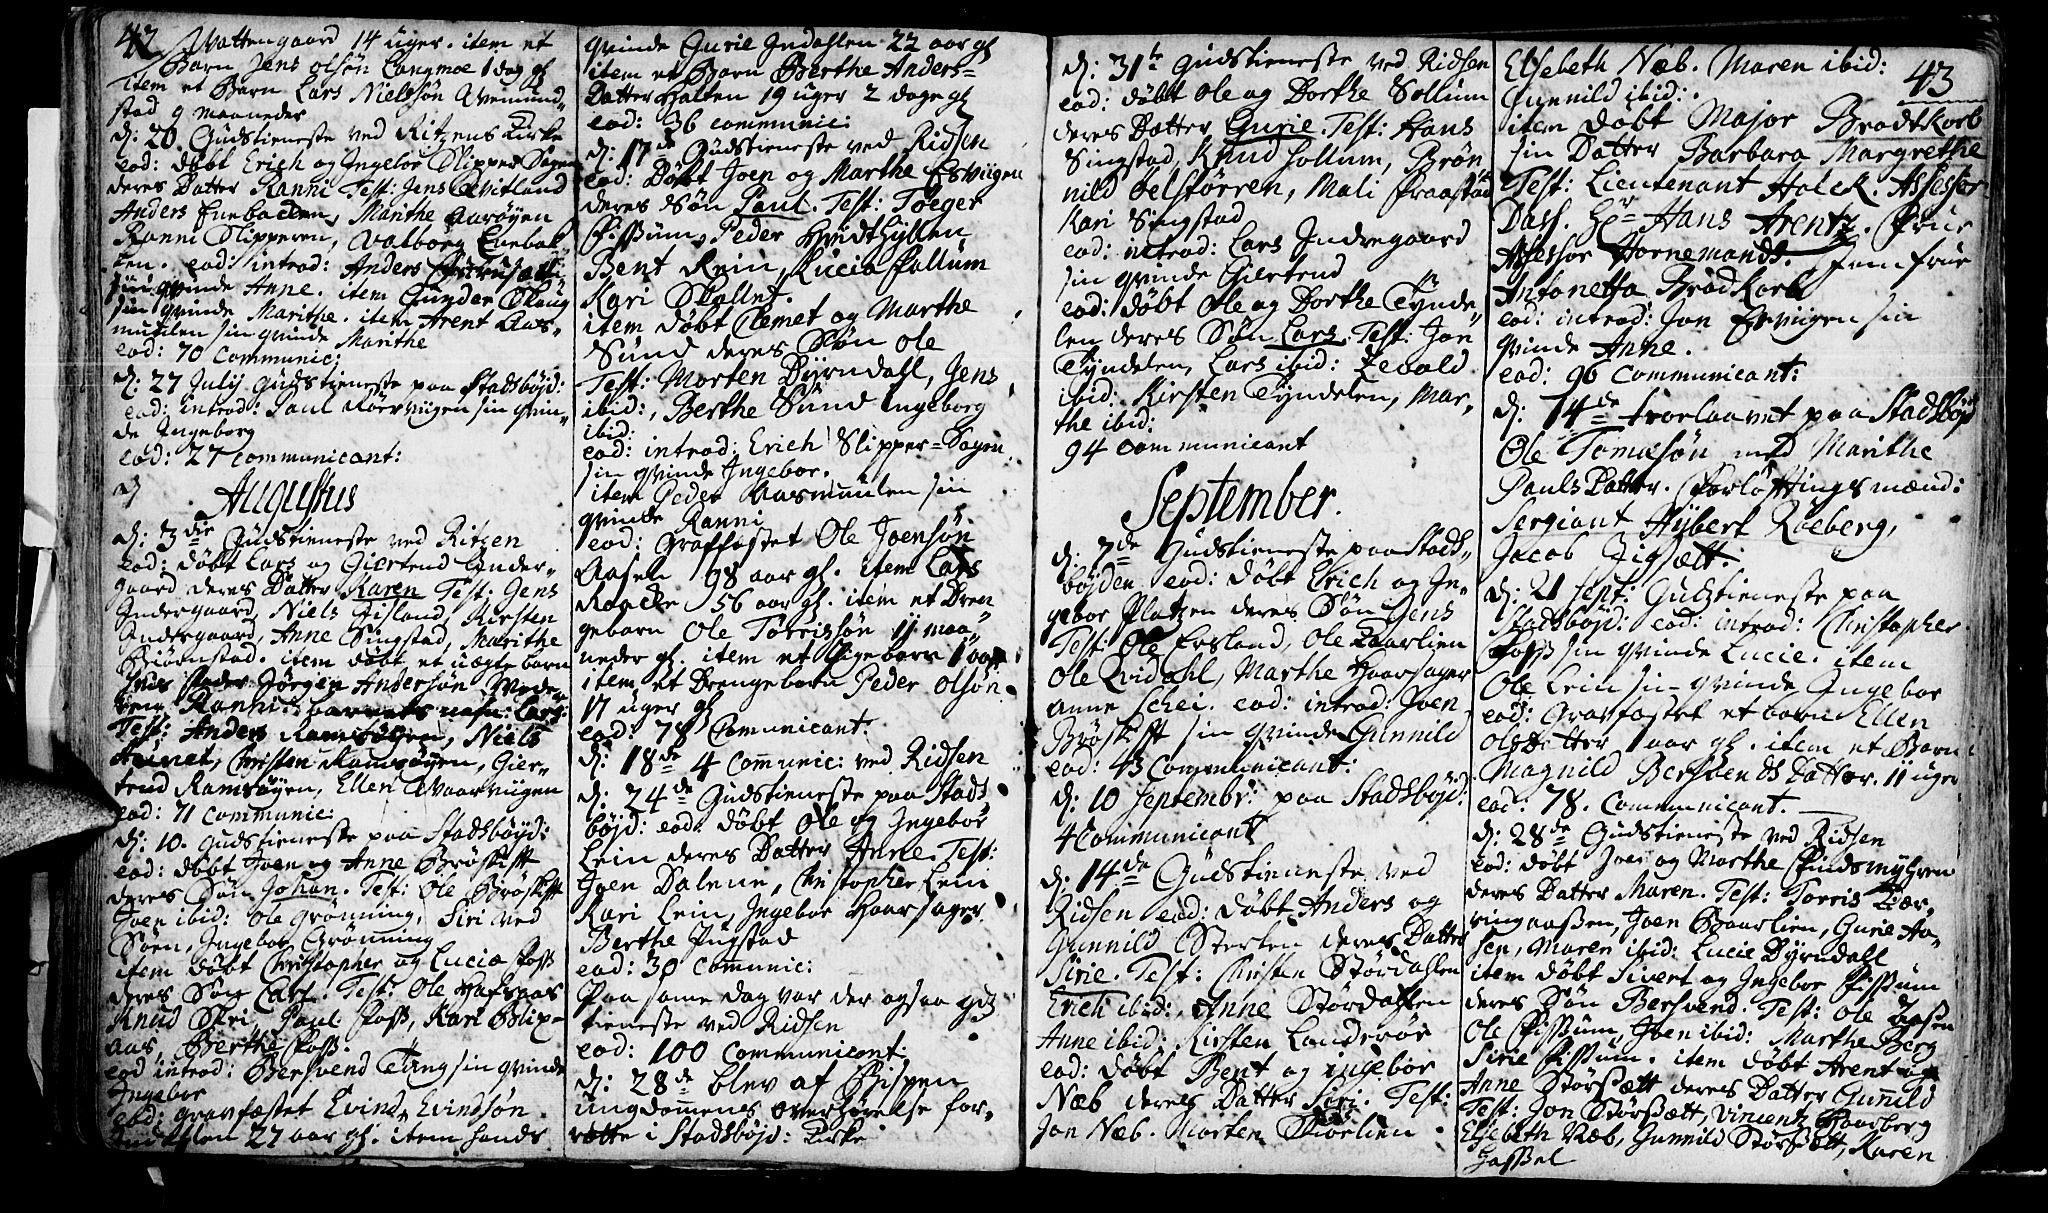 42
Wattengaard 14 uger. item et
Barn Jens olsøn Langmoe 1 dag gl
item et Barn Lars Nielssøn Wemund-
stad 9 maaneder
d: 20. Gudstieneste ved Ritzens Kirke
eod: døbt Erich og Ingebor Slipper-Sagen
deres Datter Ranni Test: Jens Qvitland
Anders Enebacken, Marithe Aarøyen
Ranni Slipperen, Valborg Enebak-
ken. eod: introd: Anders
sin qvinde Anne. item Gunder Skaug
sin qvinde Marithe. item Arent Aas-
muulen sin qvinde Marithe
eod: 70 Communic:
d: 27 Julij Gudstieneste paa Stadsbøjd:
eod: introd: Paul Rørvuigen sin qvin-
de Ingeborg
eod: 27 communicant:
Augustus
d: 3die Gudstieneste ved Ritzen
eod: døbt Lars og Giertrud Inder-
gaard deres Datter Karen Test: Jens
Indergaard, Niels Fisland, Kirsten
Indergaard, Anne Singstad, Marithe
Biørnstad. item døbt et uægte barn
hvis fader Jørgen Andersøn, Mode-
ren Ranni: barnets nafn: Lars:
Test: Anders Ramsøyen, Niels
Aunet, Christen Ramsøyen, Gier-
trud Ramsøyen, Ellen Qvaarvuigen
eod: 71 communic:
d: 10. Gudstieneste paa Stadsbøyd:
eod: døbt Joen og Anne Brøskift
deres Søn Johan. Test: Ole Brøskift
Joen ibid: Ole Grønning, Siri ved
Søen, Ingebor Grønning
item døbt Christopher og Lucia Foss
deres Søn Carl. Test: Ole Hafsaas
Knud Stri, Paul Foss, Kari Blip-
aas, Berthe Foss.
eod introd: Bersvend Tung sin qvinde
Ingebor
eod: gravfæstet Evind Evindsøn
Indahlen 27 aar gl. item hands
qvinde Gurie Indahlen 22 aar gl
item et Barn Berthe Anders-
Datter Halten 19 uger 2 dage gl
eod: 36 communic:
d: 17de Gudstieneste ved Ridsen
eod: Døbt Joen og Marthe Esvuigen
deres Søn Paul. Test: Toeger
Fissum, Peder Hvidthyllen
Bent Rein, Lucia Follum
Kari Skallet.
item døbt Clemet og Marthe
Sund deres Søn Ole
Test: Morten Dyrndahl, Jens
ibid:, Berthe Sund Ingeborg
ibid:
eod: introd: Erich Slipper-Sagen
sin qvinde Ingebor.
item Peder Aasmuulen sin
qvinde Ranni
eod: Graffæstet Ole Joensøn
Aasen 98 aar gl. item Lars
Raacke 56 aar gl. item et Dren
gebarn Ole Torrissøn 11 maa-
neder gl. item et Pigebarn 1 aar
item et Drengebarn Peder Olsøn
17 uger gl
eod: 78 Comunicant:
d: 18de 4 Communic: ved Ridsen
d: 24de Gudstieneste paa Stads
bøjd: eod: døbt Ole og Ingebor
Lein deres Datter Anne. Test:
Joen Dalene, Christopher Lein
Kari Lein, Ingebor Haarsager
Berthe Pugstad
eod: 30 Communic:
Paa same dag var der ogsaa gds
tieneste ved Ridsen
eod: 100 Communicant:
d: 28de blev af Bispen
ungdommens overhørelse for-
rette i Stadsbøjd: Kirke
d: 31te Gudstieneste ved Ridsen
eod: døbt Ole og Dorthe Sollum
deres Datter Gurie. Test: Hans
Singstad, Knud Sollum, Brøn
nild Selstørren, Mali Praastad
Kari Singstad
eod: introd: Lars Indregaard
sin qvinde Giertrud
eod: døbt Ole og Dorthe Tynde-
len deres Søn Lars. Test: Jon
Tyndelen, Lars ibid: Zevald
ibid: Kirsten Tyndelen, Mar-
the ibid:
94 communicant
September.
d: 7de Gudstieneste paa Stads-
bøjden eod: døbt Erich og In-
gebor Platzen deres Søn Jens
Test: Ole Ersland, Ole Baarlien
Ole Qvidahl, Marthe Haarsager
anne Schei. eod: introd: Joen
Brøskift sin qvinde Gunnild
eod: 43 Communicant:
d: 10 septembr: paa Stadsbøjd:
4 Communicant
d: 14de Gudstieneste ved
Ridsen eod: døbt Anders og
Gunnild Sterten deres Datter
Sirie. Test: Christen Størdahlen
Erich ibid: Anne Størdahlen
Anne ibid: Kirsten Landerøe
eod: døbt Bent og ingebor
Næb deres Datter Siri. Test:
Jon Næb. Morten Skoelien
43
Elsebeth Næb. Maren ibid:
Gunnild ibid:
item døbt Major Brodtkorb
sin Datter Barbara Margrethe
Test: Lieutenant Holck. Assessor
Dass. Hr Hans Arentz. Frue
Assessor Hornemands. Jomfrue
Antonetta Brodkorb
eod: introd: Jon Esvuigen sin
qvinde Anne.
eod: 96 Communicant:
d: 14de troelovet paa Stadsbøjd
Ole Tomasøn med Marithe
Pauls Datter. Forløftings mænd:
Sergiant Hybert Roeberg,
Jacob Zigsætt:
d: 21 sept: Gudstieneste paa
Stadsbøjd: eod: introd: Christopher
Foss sin qvinde Lucie. item
Ole Lein sin qvinde Ingebor
eod: Gravfæstet et barn Ellen
Olsdatter 1 aar gl. item et Barn
Magnild Bersvends Datter. 11 uger
eod: 78. Communicant.
d: 28de Gudstieneste ved Ridsen
eod: døbt Joen og Marthe Findsmyhren
deres Datter Maren. Test: Torris Kær-
ringaassen, Joen Baarlien, Gurie Aa-
sen, Maren ibid: Lucie Dyrndahl
item døbt Sivert og Ingebor Fissum
deres Søn Bersvend. Test: Ole Aasen
Ole Fissum, Joen ibid: Marthe Berg
Sirie Fissum. item døbt Arent og
Anne Størssætt deres Datter Gunild
Test: Jon Størssætt, Vincentz Haarberg
Elsebeth Næb, Gunnild Størssætt, Karen
Hassel